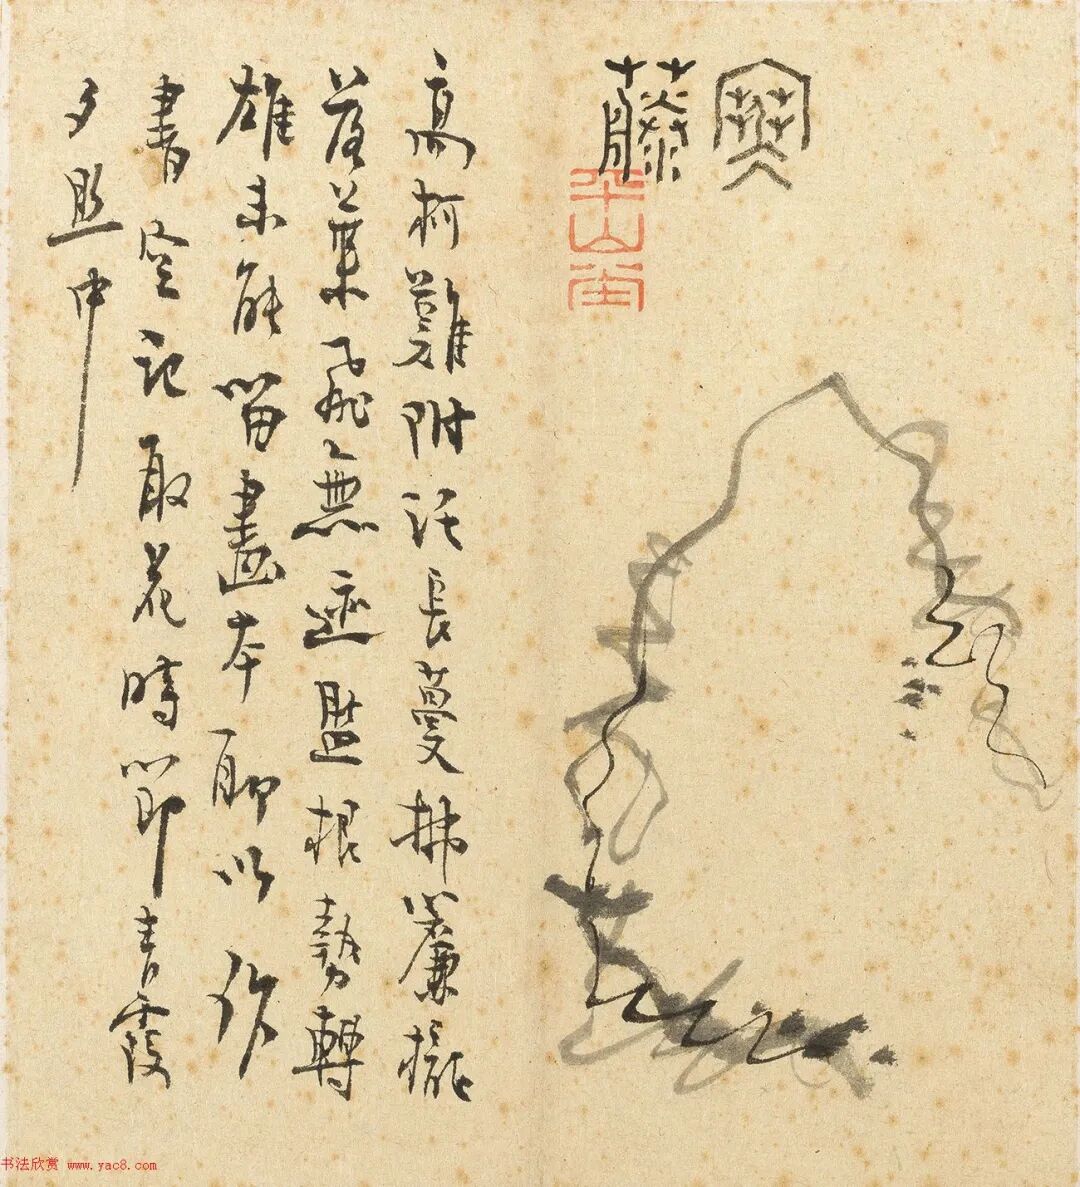 寒藤
高柯難附託長蔓拂簾櫳
落葉飛無迹盤根勢轉
雄未能留畫本聊以作
書空記取花時節青霞
夕照中
书法欣赏 www.yac8.com